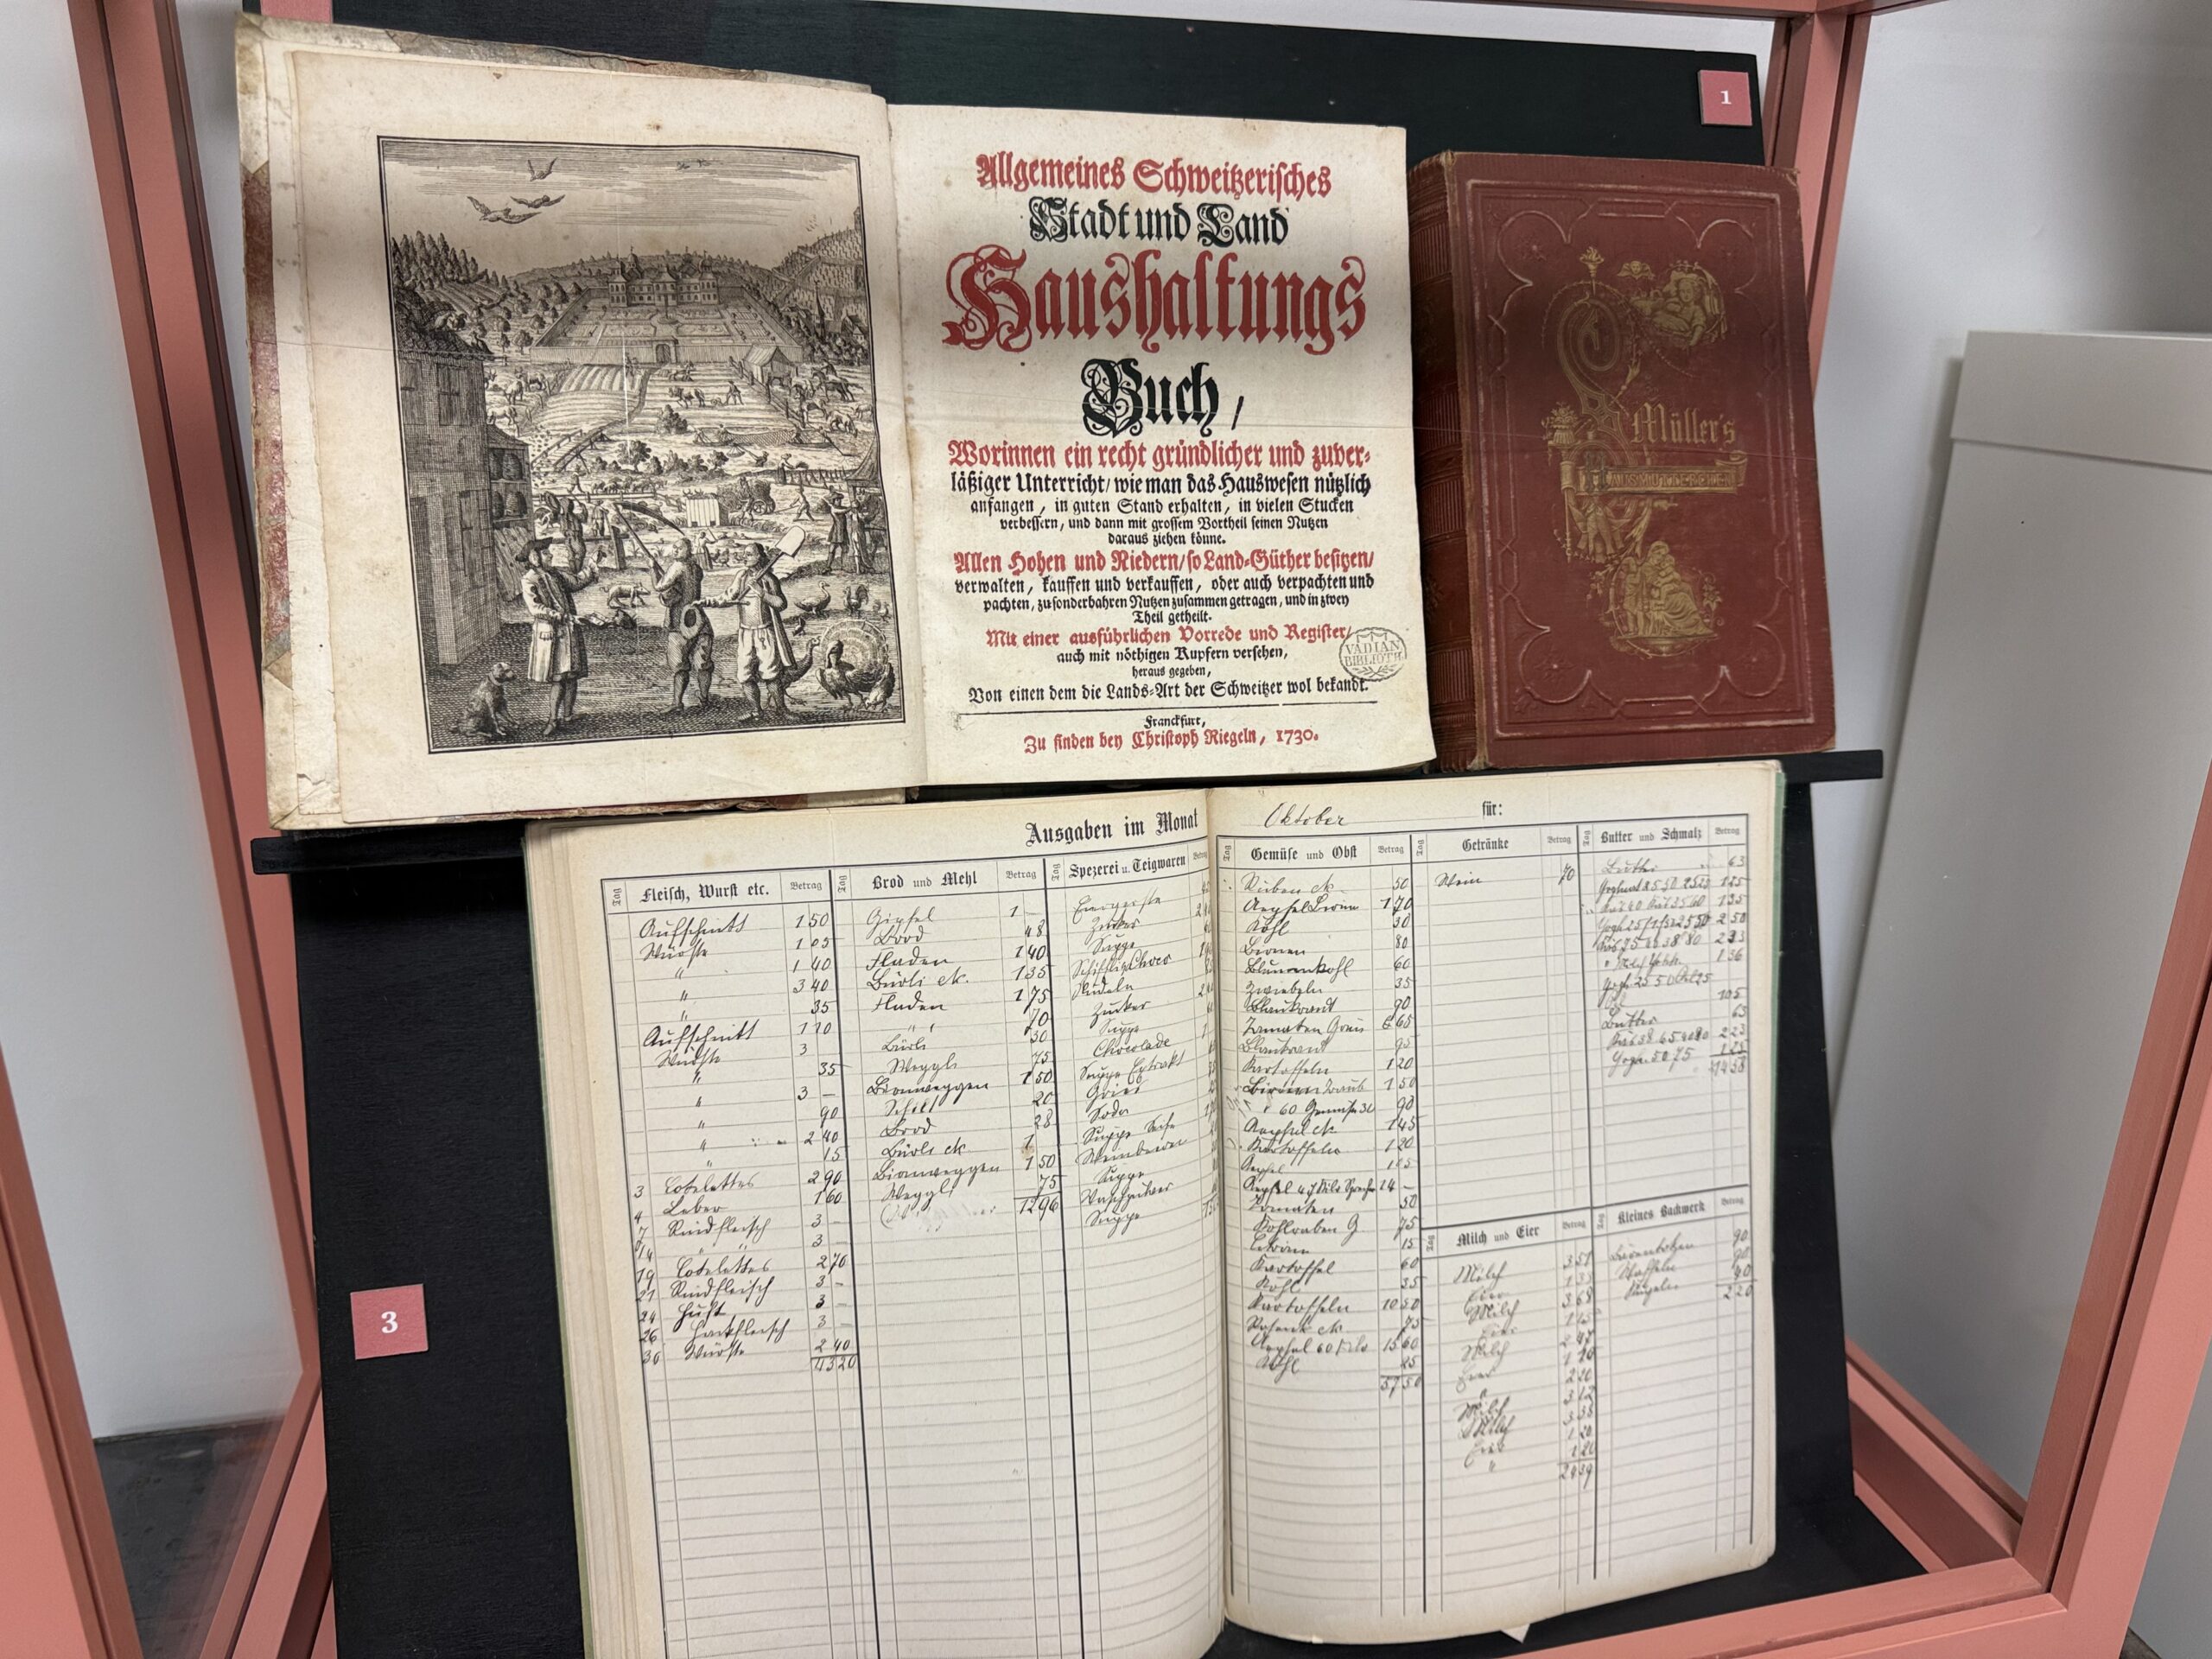 1
Allgemeines Schweitzerisches
Stadt und Land
Haushaltungs
Buch /
Worinnen ein recht gründlicher und zuver-
läßiger Unterricht / wie man das Hauswesen nützlich
anfangen, in guten Stand erhalten, in vielen Stucken
verbessern, und dann mit grossem Vortheil seinen Nutzen
daraus ziehen könne.
Allen Hohen und Niedern / so Land-Güther besitzen /
verwalten, kauffen und verkauffen, oder auch verpachten und
pachten, zu sonderbahren Nutzen zusammen getragen, und in zwey
Theil getheilt.
Mit einer ausführlichen Vorrede und Register /
auch mit nöthigen Kupfern versehen,
heraus gegeben,
Von einen dem die Lands-Art der Schweitzer wol bekandt.
VADIAN
BIBLIOTH
Franckfurt,
Zu finden bey Christoph Riegeln, 1730.
S. Müller's
HAUSMÜTTERCHEN
Ausgaben im Monat Oktober für:
Tag Fleisch, Wurst etc. Betrag
Aufschnitt 1 50
Würste 1 05
" 1 40
" 3 40
" 35
Aufschnitt 1 10
Würste 3
" 35
" 3 –
" 90
" 2 40
" 15
3 Cotelettes 2 90
4 Leber 1 60
7 Rindfleisch 3 –
14 " " 3 –
19 Cotelettes 2 70
21 Rindfleisch 3 –
24 Huft 3 –
26 Hackfleisch 3 –
30 Würste 2 40
43 20
Tag Brod und Mehl Betrag
Gipfel 1 –
Brod 48
Fladen 1 40
Bürli etc. 1 35
Fladen 1 75
" " 70
Bürli 30
Weggli 75
Birnweggen 1 50
Schilt 20
Brod 28
Bürli etc 1
Birnweggen 1 50
Weggli 75
12 96
Tag Spezerei u. Teigwaren Betrag
Eiergerste
Zucker
Suppe
Nudeln
Zucker
Suppe
Chocolade
Suppe Extrakt
Gries
Soda
Suppe Seife
Weinbeeren
Suppe
Waschpulver
Suppe
Tag Gemüse und Obst Betrag
Rüben etc. 50
Aepfel Birnen 1 70
Kohl 30
Birnen 80
Blumenkohl 60
Zwiebeln 35
Blaukraut 90
Tomaten 6 65
Blaukraut 95
Kartoffeln 1 20
Birnen Traub 1 50
" 60 Gemüse 30 90
Aepfel etc 1 45
Kartoffeln 1 20
Aepfel 1 05
Aepfel 47 Kilo 14 –
Tomaten 50
Kohlraben 75
Citronen 15
Kartoffel 60
Kohl 35
Kartoffeln 10 50
75
Aepfel 60 Kilo 15 60
Kohl 25
57 50
Tag Getränke Betrag
Wein 70
Tag Butter und Schmalz Betrag
Butter 63
1 25
1 35
2 50
2 33
1 36
1 05
Butter 63
2 23
1 25
14 58
Tag Milch und Eier Betrag
Milch 3 51
Eier
Milch 3 68
Eier
Milch 2 47
Eier
" 2 20
Milch 3 12
Milch 3 35
Eier 1 20
" 1 20
Tag Kleines Backwerk Betrag
Bärentatzen 90
Waffeln 90
Kugeln 40
2 20
3